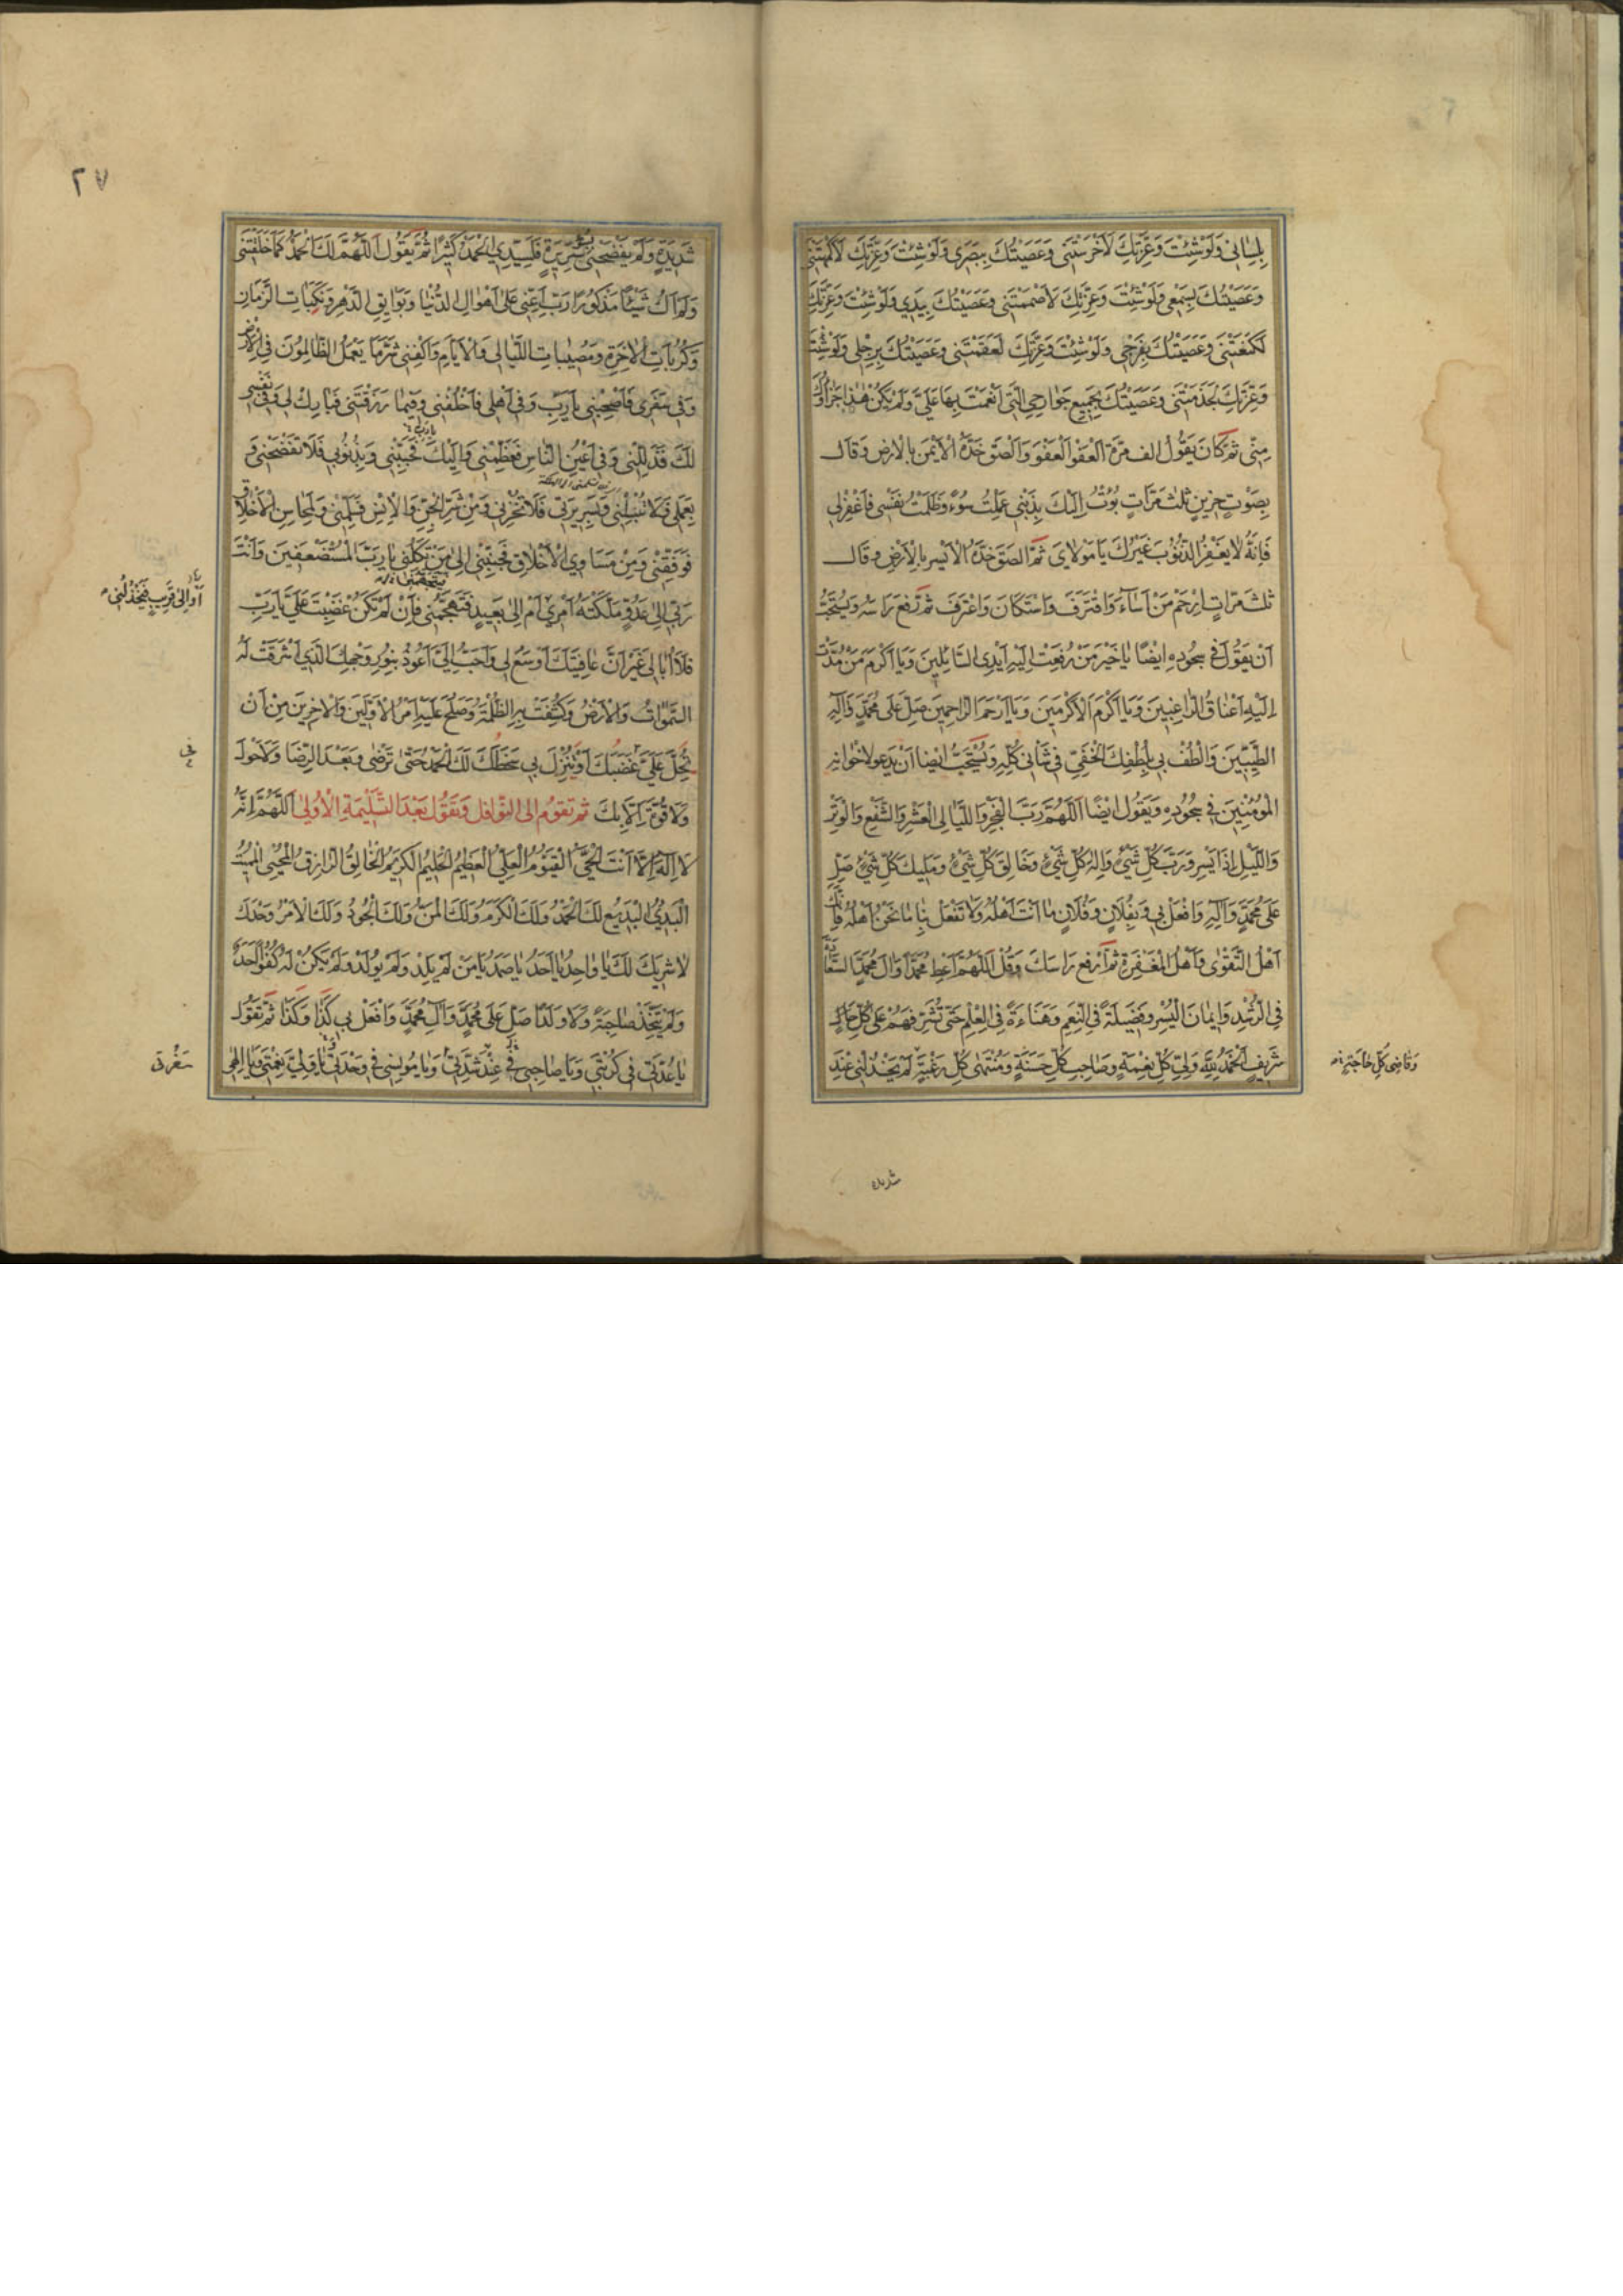 بِلِسَانِي وَلَوْ شِئْتَ وَعِزَّتِكَ لَأَخْرَسْتَنِي وَعَصَيْتُكَ بِبَصَرِي وَلَوْ شِئْتَ وَعِزَّتِكَ لَأَكْمَهْتَنِي
وَعَصَيْتُكَ بِسَمْعِي وَلَوْ شِئْتَ وَعِزَّتِكَ لَأَصْمَمْتَنِي وَعَصَيْتُكَ بِيَدِي وَلَوْ شِئْتَ وَعِزَّتِكَ
لَكَنَّعْتَنِي وَعَصَيْتُكَ بِفَرْجِي وَلَوْ شِئْتَ وَعِزَّتِكَ لَعَقَمْتَنِي وَعَصَيْتُكَ بِرِجْلِي وَلَوْ شِئْتَ
وَعِزَّتِكَ لَجَذَمْتَنِي وَعَصَيْتُكَ بِجَمِيعِ جَوَارِحِي الَّتِي أَنْعَمْتَ بِهَا عَلَيَّ وَلَمْ يَكُنْ هٰذَا جَزَاؤُكَ
مِنِّي ثُمَّ كَانَ يَقُولُ الف مَرَّة الْعَفْوَ الْعَفْوَ وَأَلْصَقَ خَدَّهُ الْأَيْمَنَ بِالْأَرْضِ وَقَالَ
بِصَوْتٍ حَزِينٍ ثَلٰثَ مَرَّاتٍ بُؤْتُ إِلَيْكَ بِذَنْبِي عَمِلْتُ سُوءً وَظَلَمْتُ نَفْسِي فَاغْفِرْ لِي
فَإِنَّهُ لَا يَغْفِرُ الذُّنُوبَ غَيْرُكَ يَا مَوْلَايَ ثُمَّ الصَقَ خَدَّهُ الْأَيْسَرَ بِالْأَرْضِ وَقَالَ
ثلث مَرَّاتٍ اِرْحَمْ مَنْ أَسَاءَ وَاقْتَرَفَ وَاسْتَكَانَ وَاعْتَرَفَ ثُمَّ رَفَعَ رَاسَهُ وَيُسْتَحَبُّ
أَنْ يَقُولَ فِي سُجُودِهِ ايْضًا يَا خَيْرَ مَنْ رُفِعَتْ إِلَيْهِ أَيْدِي السَّائِلِينَ وَيَا أَكْرَمَ مَنْ مُدَّتْ
إِلَيْهِ أَعْنَاقُ الرَّاغِبِينَ وَيَا أَكْرَمَ الْأَكْرَمِينَ وَيَا أَرْحَمَ الرَّاحِمِينَ صَلِّ عَلَى مُحَمَّدٍ وَآلِهِ
الطَّيِّبِينَ وَالْطُفْ بِي بِلُطْفِكَ الْخَفِيِّ فِي شَأْنِي كُلِّهِ وَيُسْتَحَبُّ ايْضًا أَنْ يَدْعُو لِاخْوَانِهِ
الْمُؤْمِنِينَ فِي سُجُودِهِ وَيَقُولَ ايْضًا اَللّٰهُمَّ رَبَّ الْفَجْرِ وَاللَّيَالِي الْعَشْرِ وَالشَّفْعِ وَالْوَتْرِ
وَاللَّيْلِ إِذَا يَسْرِ وَرَبَّ كُلِّ شَيْءٍ وَإِلٰهَ كُلِّ شَيْءٍ وَخَالِقَ كُلِّ شَيْءٍ وَمَلِيكَ كُلِّ شَيْءٍ صَلِّ
عَلَى مُحَمَّدٍ وَآلِهِ وَافْعَلْ بِي وَبِفُلَانٍ وَفُلَانٍ مَا أَنْتَ أَهْلُهُ وَلَا تَفْعَلْ بِنَا مَا نَحْنُ أَهْلُهُ فَإِنَّكَ
أَهْلُ التَّقْوٰى وَأَهْلُ الْمَغْفِرَةِ ثُمَّ ارْفَعْ رَاسَكَ وَقُلْ اَللّٰهُمَّ أَعْطِ مُحَمَّدًا وَآلَ مُحَمَّدٍ السَّعَادَةَ
فِي الرُّشْدِ وَإِيمَانَ الْيُسْرِ وَفَضِيلَةً فِي النِّعَمِ وَهَنَاءَةً فِي الْعِلْمِ حَتَّى تُشَرِّفَهُمْ عَلَى كُلِّ
شَرِيفٍ اَلْحَمْدُ لِلّٰهِ وَلِيِّ كُلِّ نِعْمَةٍ وَصَاحِبِ كُلِّ حَسَنَةٍ وَمُنْتَهَى كُلِّ رَغْبَةٍ لَمْ يَخْذُلْنِي عِنْدَ
وَقَاضِي كُلِّ حَاجَةٍ
شديدة
٢٧
شَدِيدَةٍ وَلَمْ يَفْضَحْنِي بِسَرِيرَةٍ فَلِسَيِّدِي الْحَمْدُ كَثِيرًا ثُمَّ يَقُولُ اَللّٰهُمَّ لَكَ الْحَمْدُ كَمَا خَلَقْتَنِي
وَلَمْ أَكُ شَيْئًا مَذْكُورًا رَبِّ أَعِنِّي عَلَى أَهْوَالِ الدُّنْيَا وَبَوَائِقِ الدَّهْرِ وَنَكَبَاتِ الزَّمَانِ
وَكُرُبَاتِ الْآخِرَةِ وَمُصِيبَاتِ اللَّيَالِي وَالْأَيَّامِ وَاكْفِنِي شَرَّ مَا يَعْمَلُ الظَّالِمُونَ فِي الْأَرْضِ
وَفِي سَفَرِي فَاصْحَبْنِي يَا رَبِّ وَفِي أَهْلِي فَاخْلُفْنِي وَفِيمَا رَزَقْتَنِي فَبَارِكْ لِي وَفِي نَفْسِي
لَكَ فَذَلِّلْنِي وَفِي أَعْيُنِ النَّاسِ فَعَظِّمْنِي وَإِلَيْكَ فَحَبِّبْنِي وَبِذُنُوبِي فَلَا تَفْضَحْنِي وَ
بِعَمَلِي فَلَا تُبْسِلْنِي وَبِسَرِيرَتِي فَلَا تُخْزِنِي وَمِنْ شَرِّ الْجِنِّ وَالْإِنْسِ فَسَلِّمْنِي وَلِمَحَاسِنِ الْأَخْلَاقِ
فَوَفِّقْنِي وَمِنْ مَسَاوِي الْأَخْلَاقِ فَجَنِّبْنِي إِلَى مَنْ تَكِلُنِي يَا رَبَّ الْمُسْتَضْعَفِينَ وَأَنْتَ
رَبِّي إِلَى عَدُوٍّ مَلَّكْتَهُ أَمْرِي أَمْ إِلَى بَعِيدٍ فَيَتَهَجَّمُنِي فَإِنْ لَمْ تَكُنْ غَضِبْتَ عَلَيَّ يَا رَبِّ
أَوْ إِلَى قَرِيبٍ فَيَخْذُلُنِي
فَلَا أُبَالِي غَيْرَ أَنَّ عَافِيَتَكَ أَوْسَعُ لِي وَأَحَبُّ إِلَيَّ أَعُوذُ بِنُورِ وَجْهِكَ الَّذِي أَشْرَقَتْ لَهُ
السَّمٰوَاتُ وَالْأَرْضُ وَكُشِفَتْ بِهِ الظُّلْمَةُ وَصَلُحَ عَلَيْهِ أَمْرُ الْأَوَّلِينَ وَالْآخِرِينَ مِنْ أَنْ
يَحُلَّ عَلَيَّ غَضَبُكَ أَوْ يَنْزِلَ بِي سَخَطُكَ لَكَ الْحَمْدُ حَتَّى تَرْضَى وَبَعْدَ الرِّضَا وَلَا حَوْلَ
وَلَا قُوَّةَ إِلَّا بِكَ ثُمَّ تَقُومُ إِلَى النَّوَافِلِ وَتَقُولُ بَعْدَ التَّسْلِيمَةِ الْأُولَى اَللّٰهُمَّ إِنَّهُ
لَا إِلٰهَ إِلَّا أَنْتَ الْحَيُّ الْقَيُّومُ الْعَلِيُّ الْعَظِيمُ الْحَلِيمُ الْكَرِيمُ الْخَالِقُ الرَّازِقُ الْمُحْيِي الْمُمِيتُ
الْبَدِيءُ الْبَدِيعُ لَكَ الْحَمْدُ وَلَكَ الْكَرَمُ وَلَكَ الْمَنُّ وَلَكَ الْجُودُ وَلَكَ الْأَمْرُ وَحْدَكَ
لَا شَرِيكَ لَكَ يَا وَاحِدُ يَا أَحَدُ يَا صَمَدُ يَا مَنْ لَمْ يَلِدْ وَلَمْ يُولَدْ وَلَمْ يَكُنْ لَهُ كُفُوًا أَحَدٌ
وَلَمْ يَتَّخِذْ صَاحِبَةً وَلَا وَلَدًا صَلِّ عَلَى مُحَمَّدٍ وَآلِ مُحَمَّدٍ وَافْعَلْ بِي كَذَا وَكَذَا ثُمَّ تَقُولُ
يَا عُدَّتِي فِي كُرْبَتِي وَيَا صَاحِبِي فِي شِدَّتِي وَيَا مُونِسِي فِي وَحْدَتِي يَا وَلِيَّ نِعْمَتِي وَيَا إِلٰهِي